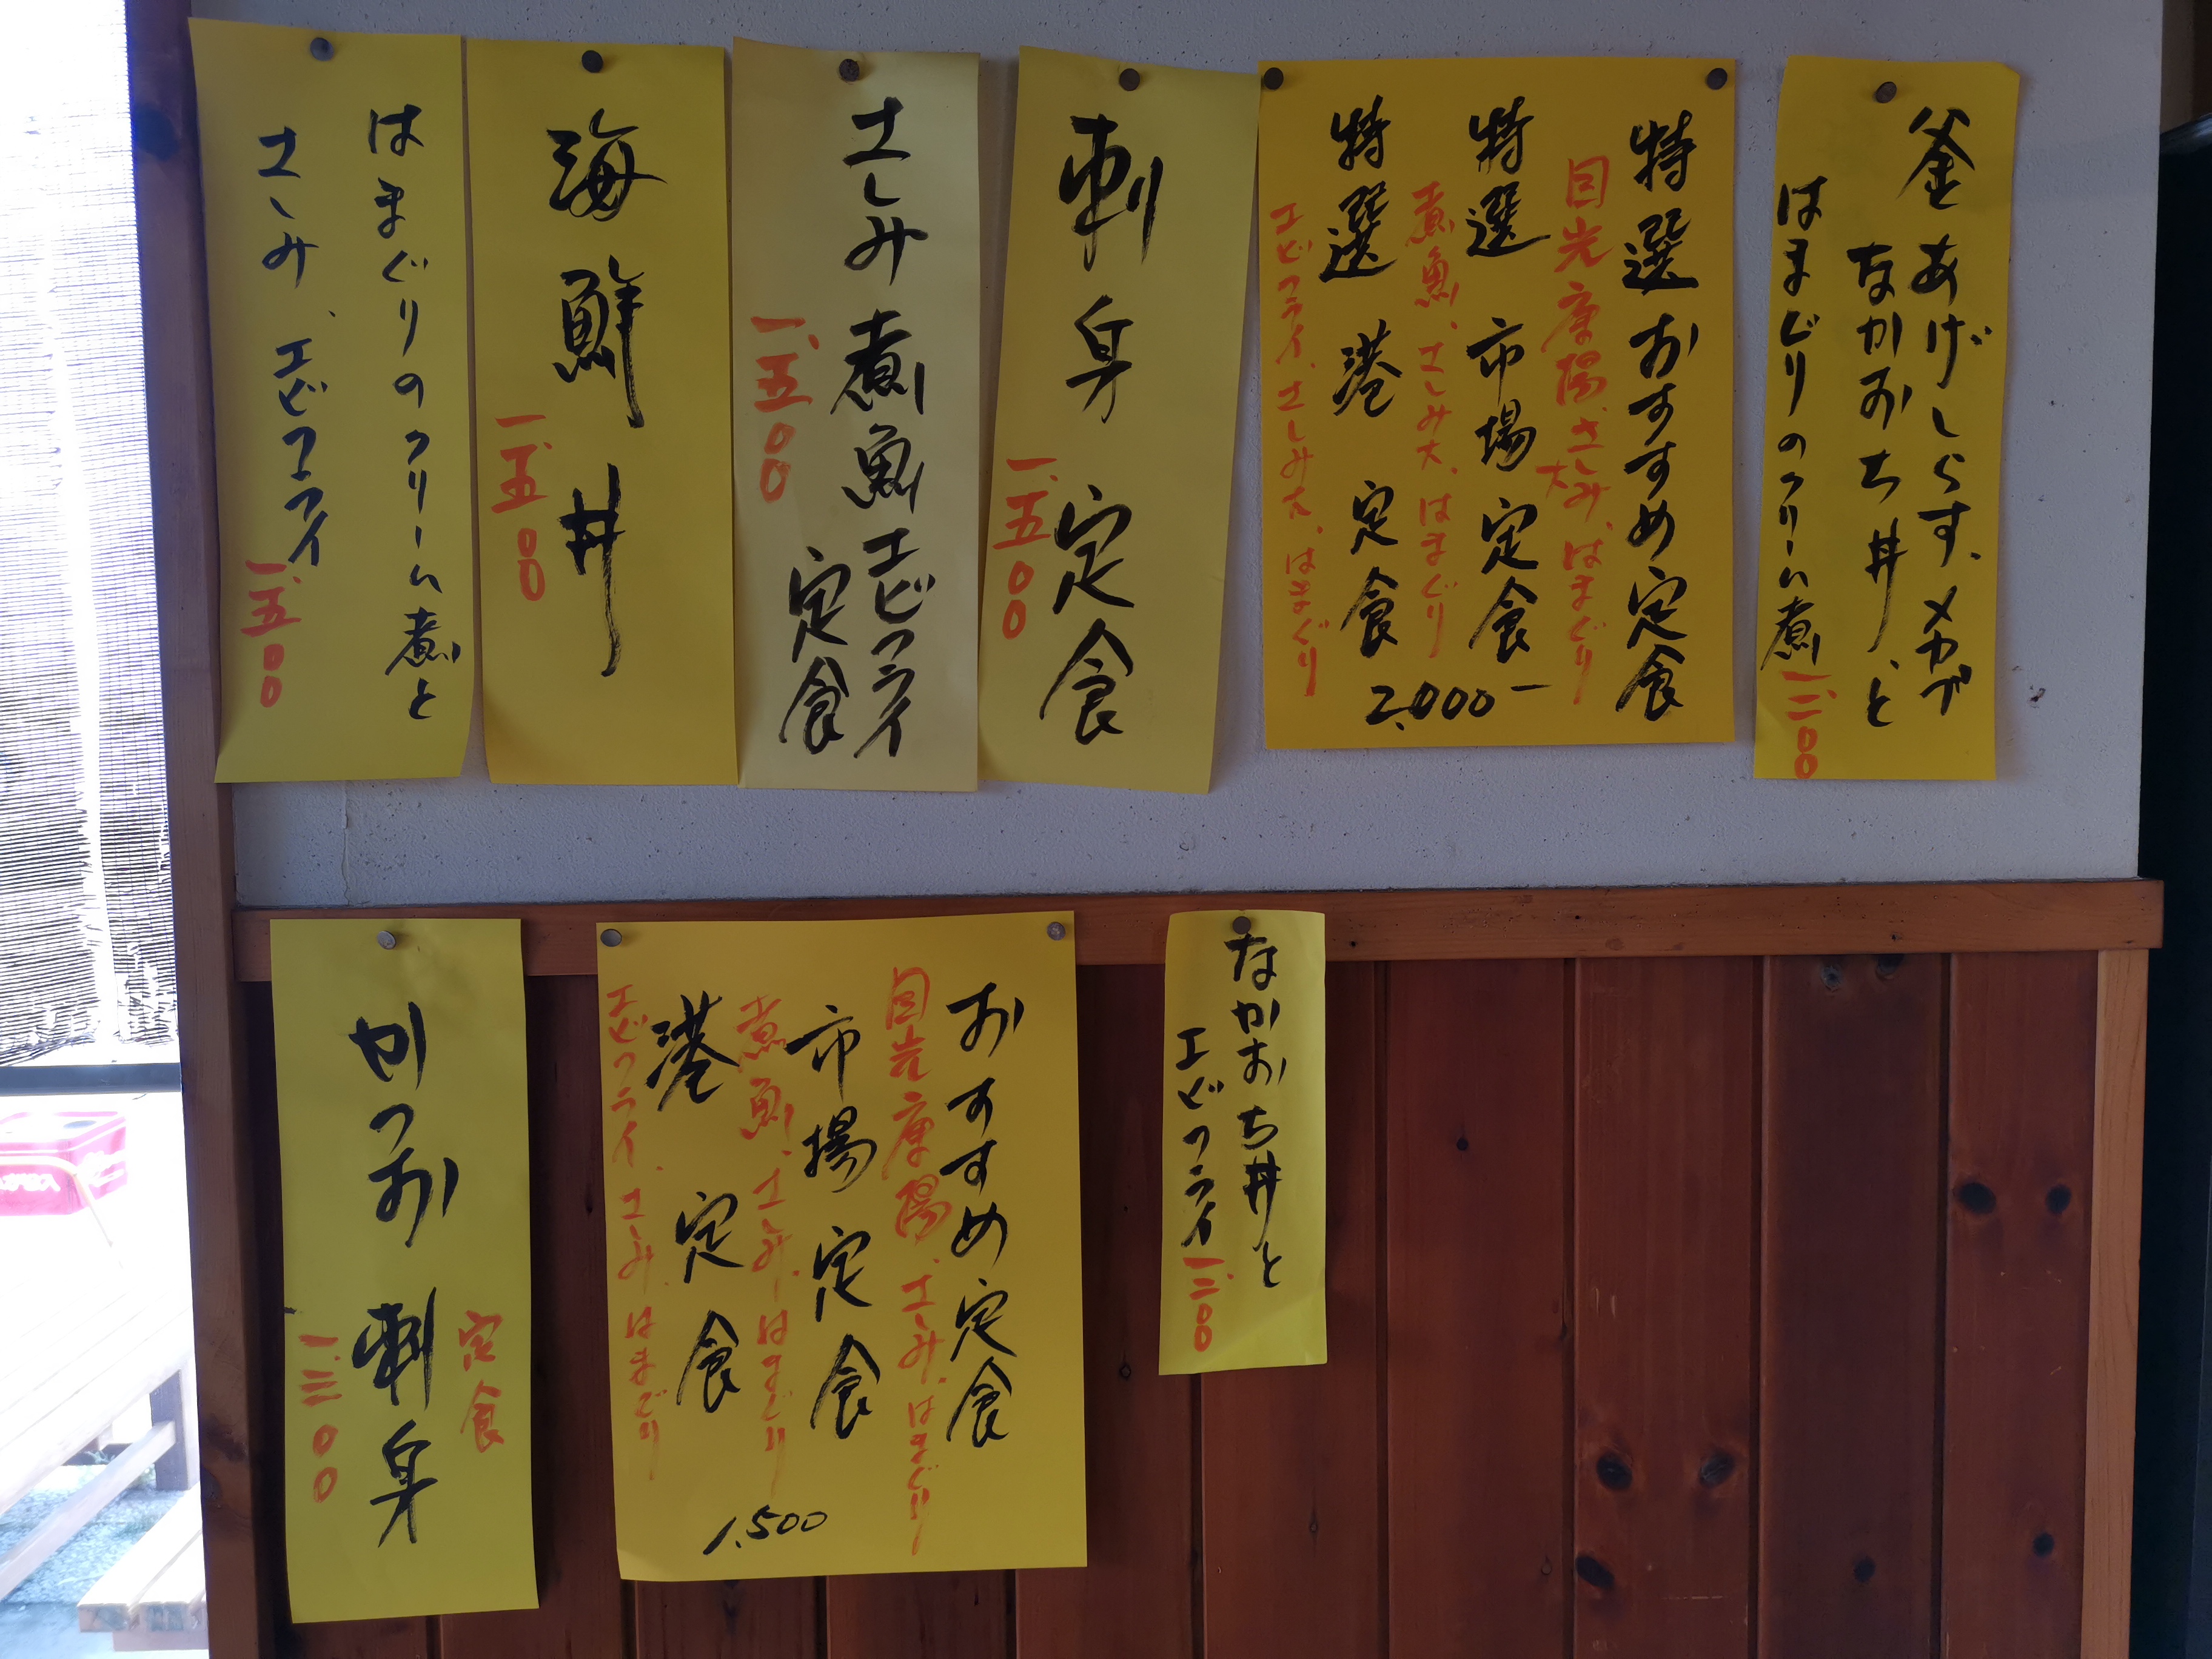 釜あげしらす、メカブ
なかおち丼、と
はまぐりのクリーム煮
一、二〇〇
特選おすすめ定食
目光唐揚、さしみ大、はまぐり
特選 市場定食
煮魚、さしみ大、はまぐり
特選 港 定食
エビフライ、さしみ大、はまぐり
2,000-
刺身定食
一、五〇〇
さしみ煮魚エビフライ
定食
一、五〇〇
海鮮丼
一、五〇〇
はまぐりのクリーム煮と
さしみ、エビフライ
一、五〇〇
なかおち丼と
エビフライ
一、二〇〇
おすすめ定食
目光唐揚、さしみ、はまぐり
市場定食
煮魚、さしみ、はまぐり
港定食
エビフライ、さしみ、はまぐり
1,500
定食
かつお刺身
一、三〇〇